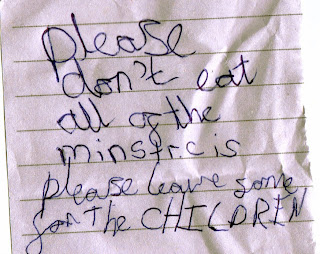 please
don't eat
all of the
minstrels
please leave some
for the CHILDREN